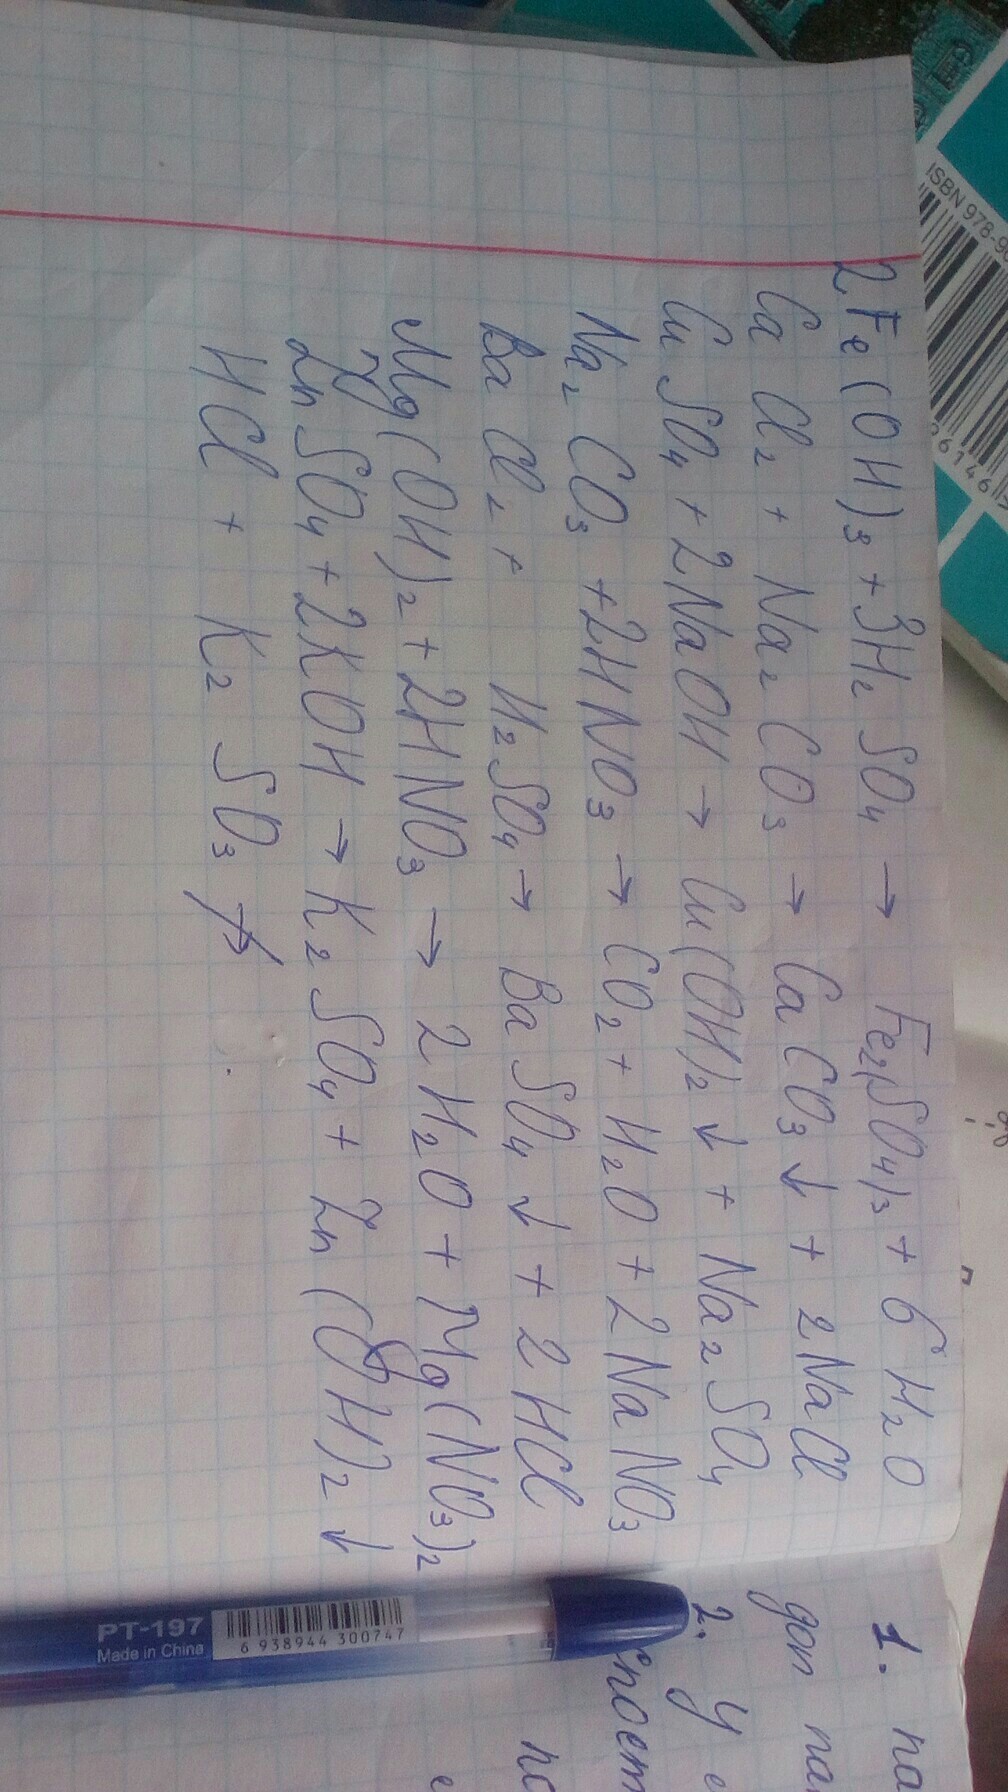 2Fe(OH)₃ + 3H₂SO₄ → Fe₂(SO₄)₃ + 6H₂O
CaCl₂ + Na₂CO₃ → CaCO₃↓ + 2NaCl
CuSO₄ + 2NaOH → Cu(OH)₂↓ + Na₂SO₄
Na₂CO₃ + 2HNO₃ → CO₂ + H₂O + 2NaNO₃
BaCl₂ + H₂SO₄ → BaSO₄↓ + 2HCl
Mg(OH)₂ + 2HNO₃ → 2H₂O + Mg(NO₃)₂
ZnSO₄ + 2KOH → K₂SO₄ + Zn(OH)₂↓
HCl + K₂SO₃ ↛
1. по
доп па
2. У е
по
е
PT-197
Made in China
6 938944 300747
ISBN 978-9